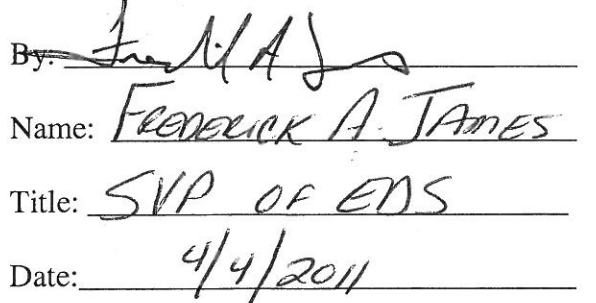 By:
Name: FREDERICK A. JAMES
Title: SVP OF EDS
Date: 4/4/2011